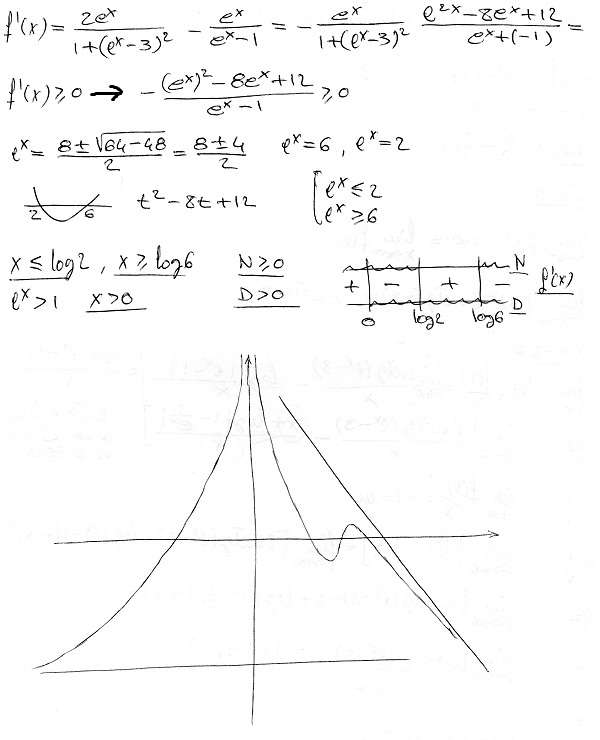 f'(x) = 2e^x / (1+(e^x-3)^2) - e^x / (e^x-1) = - e^x / (1+(e^x-3)^2) (e^2x - 8e^x + 12) / (e^x+(-1)) =
f'(x) ≥ 0 → - ((e^x)^2 - 8e^x + 12) / (e^x-1) ≥ 0
e^x = (8 ± √(64-48)) / 2 = (8 ± 4) / 2 e^x = 6 , e^x = 2
2 6 t^2 - 8t + 12 [ e^x ≤ 2
e^x ≥ 6
x ≤ log2 , x ≥ log6 N ≥ 0 N
e^x > 1 x > 0 D > 0 + - + - f'(x)
D
0 log2 log6